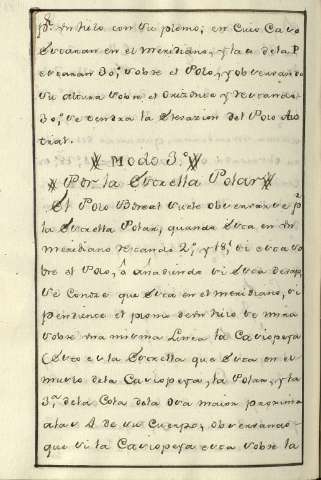 pr. un hilo con su plomo; en cuio caso
estaran en el meridiano, y la α de la P
estaran 30° sobre el Polo, y observando
su altura sobre el orizonte y restando
30°, se tendra la elevacion del Polo Aus
tral.
Modo 3°
Por la Estrella Polar
El Polo Boreal suele observarse pr.
la Estrella Polar, quando esta en un
meridiano restando 2°, y 18', si esta so
bre el Polo, ó añadiendo si esta debaxo,
Se conoze que esta en el meridiano, si
pendiente el plomo de un hilo se mira
sobre una misma linea la Casiopeya
(Esto es la Estrella que esta en el
muslo de la Casiopeya, la Polar, y la
3ra. de la Cola de la Osa maior proxima
a las 4 de su Cuerpo, observando
que si la Casiopeya esta sobre la